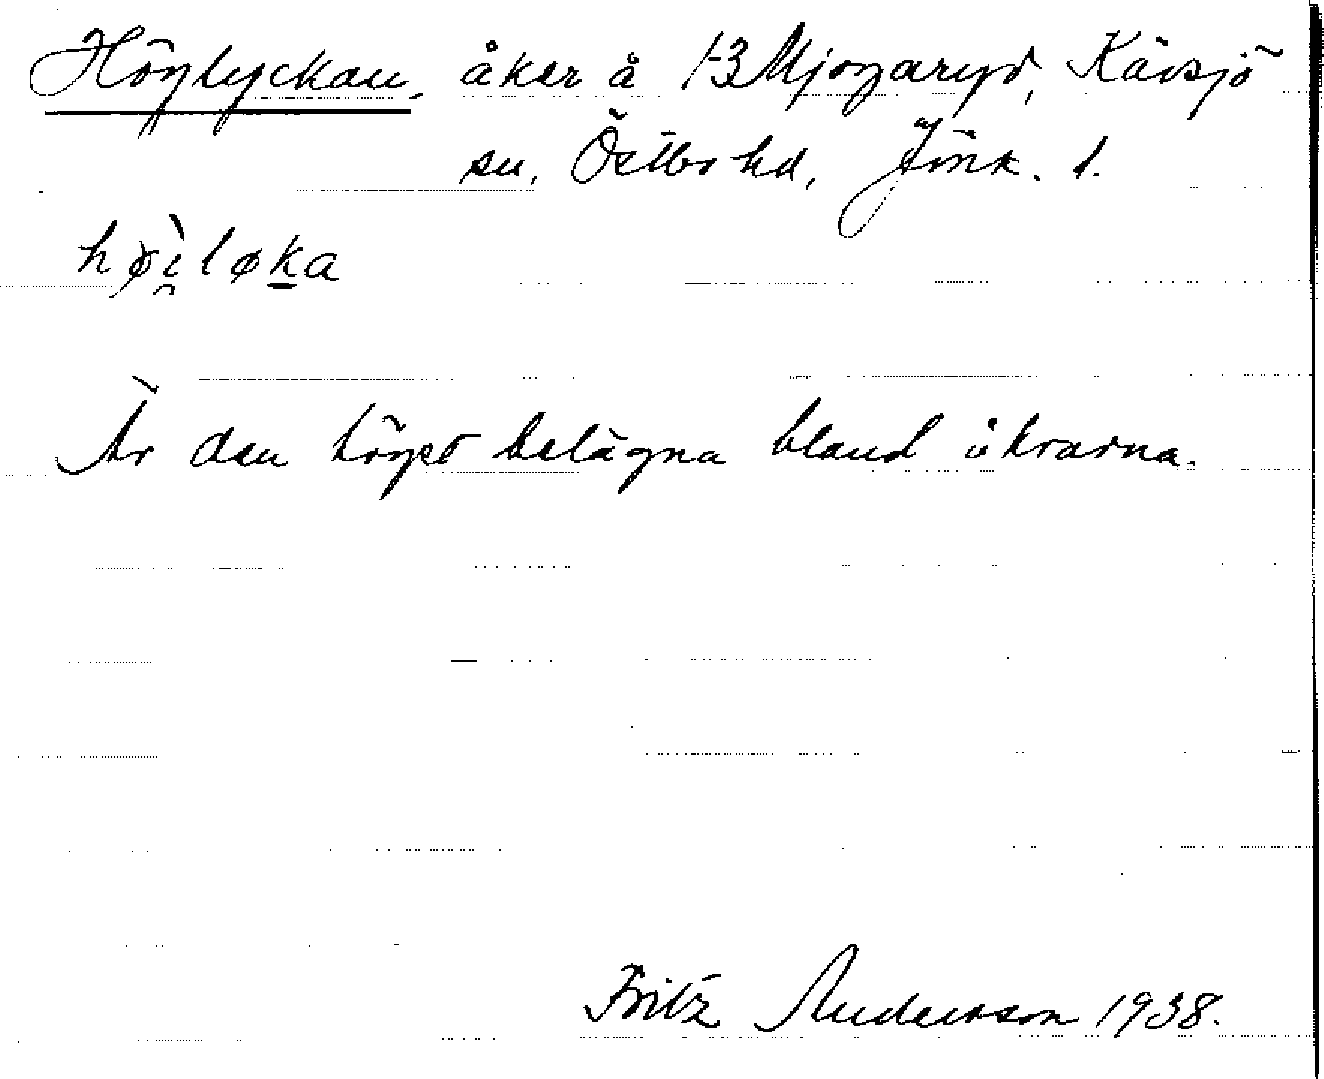 Höglyckan, åker å 1-3 Mjogaryd, Kävsjö
sn, Östbo hd, Jönk. l.
høì̯løka
Är den högst belägna bland åkrarna.
Fritz Anderson 1938.